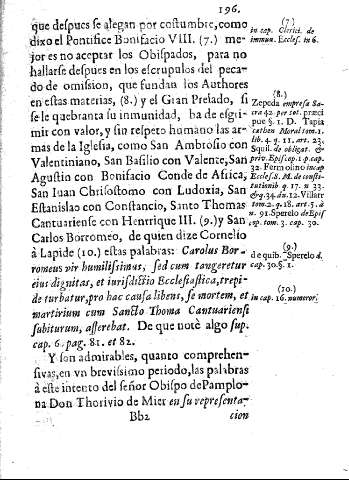 196.
que despues se alegan por costumbre, como
dixo el Pontifice Bonifacio VIII. (7.) me-
jor es no aceptar los Obispados, para no
hallarse despues en los escrupulos del peca-
do de omision, que fundan los Authores
en estas materias, (8.) y el Gran Prelado, si
se le quebranta su inmunidad, ha de esgri-
mir con valor, y sin respeto humano las ar-
mas de la Iglesia, como San Ambrosio con
Valentiniano, San Basilio con Valente, San
Agustin con Bonifacio Conde de Africa,
San Iuan Chrisostomo con Ludoxia, San
Estanislao con Constancio, Santo Thomas
Cantuariense con Henrrique III. (9.) y San
Carlos Borromeo, de quien dize Cornelio
à Lapide (10.) estas palabras: Carolus Bor-
romeus vir humilissimus, sed cum tangeretur
eius dignitas, et iurisdictio Ecclesiastica, trepi-
de turbatur, pro hac causa libens, se mortem, et
martirium cum Sancto Thoma Cantuariensi
subiturum, asserebat. De que notè algo sup.
cap. 6. pag. 81. et 82.
Y son admirables, quanto comprehen-
sivas, en vn brevissimo periodo, las palabras
à este intento del señor Obispo de Pamplo-
na Don Thorivio de Mier en su representa-
Bb2 cion
(7)
in cap. Clerici. de
immun. Eccles. in 6.
(8.)
Zepeda empresa Sa-
cra 42. per tot. præci
pue §. 1. D. Tapia
cathen Moral tom. 1.
lib. 4. q. 11. art. 23.
Squil. de obligat. &
priv. Episc. ep. 1. p. cap.
32. Fermosino in cap
Eccles. S. M. de consti-
tutionib q. 17. n 33.
& q. 34. dn. 12. Villarr
tom. 2. q. 18. art. 5. d
n. 91. Sperelo de Episc
cop. tom. 3. cap. 30.
(9.)
de quib. Sperelo d.
cap. 30. §. 1.
(10.)
in cap. 16. numeror.